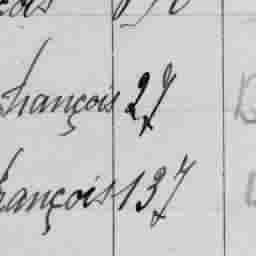 françois 27
françois 137